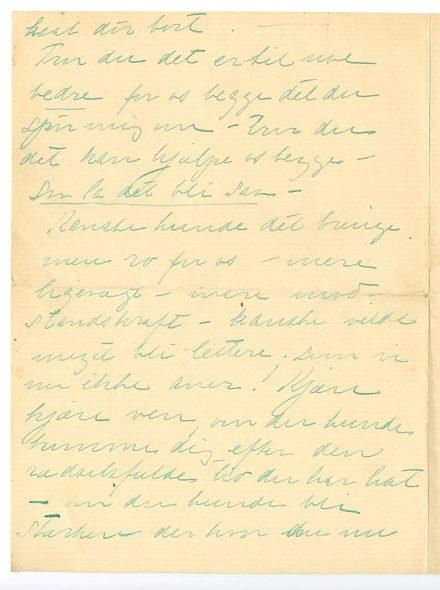 helt dér bort.
Tror du det er til noe
bedre for os begge det du
spør mig om – Tror du
det kan hjælpe os begge –
Saa la det bli saa –
Kanske kunde det bringe
mere ro for os – mere
ligevægt – mere mod-
standskraft – kanske vilde
meget bli lettere. som vi
nu ikke aner! Kjære
kjære ven, om du kunde
komme dig efter den
rædselsfulde tid du har hat
– om du kunde bli
stærkere der hvor du nu